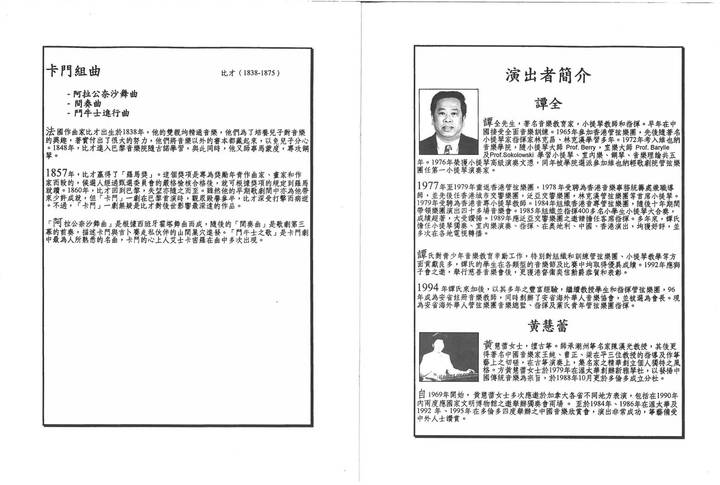 卡門組曲
比才 (1838-1875)
- 阿拉公奈沙舞曲
- 間奏曲
- 鬥牛士進行曲
法國作曲家比才出生於1838年，他的雙親均精通音樂，他們為了培養兒子對音樂
的興趣，著實付出了很大的努力，他們將音樂以外的書本都藏起來，以免兒子分心
。1848年，比才進入巴黎音樂院隨古諾學習，與此同時，他又師事馬蒙度，專攻鋼
琴。
1857年，比才贏得了「羅馬獎」。這個獎項是專為獎勵年青作曲家、畫家和作
家而設的，候選人經過甄選委員會的嚴格檢核合格後，就可根據獎項的規定到羅馬
就讀。1860年，比才回到巴黎，失望亦隨之而至。雖然他的早期歌劇間中亦為他帶
來少許成就，但「卡門」一劇在巴黎首演時，觀眾殿譽參半，比才深受打擊而病逝
。不過，「卡門」一劇無疑是比才對後世影響最深遠的作品。
「阿拉公奈沙舞曲」是根據西班牙霍塔舞曲而成，隨後的「間奏曲」是歌劇第三
幕的前奏，描述卡門與吉卜賽走私伙伴的山間巢穴遠景。「鬥牛士之歌」是卡門劇
中最為人所熟悉的名曲，卡門的心上人艾士卡密羅在曲中多次出現。
演出者簡介
譚全
譚全先生，著名音樂教育家，小提琴教師和指揮。早年在中
國接受全面音樂訓練。1965年參加香港管弦樂團，先後隨著名
小提琴家指揮家林克昌、林克漢學習多年。1972年考入維也納
音樂學院，隨小提琴大師 Prof. Berry，室樂大師 Prof. Barylle
及Prof.Sokolowski 學習小提琴、室內樂、鋼琴、音樂理論共五
年。1976年榮獲小提琴高級演奏文憑，同年被學院選派參加維也納輕歌劇院管弦樂
團任第一小提琴演奏家。
1977年至1979年重返香港管弦樂團，1978年受聘為香港音樂事務統籌處職職導
師，並先後任香港城市交響樂團，泛亞交響樂團，林克漢管弦樂團等首席小提琴。
1979年受聘為香港音專小提琴教師。1984年組織香港音專管弦樂團，隨後十年期間
帶領樂團演出四十多場音樂會。1985年組織並指揮400多名小學生小提琴大合奏，
成績超著，大受讚揚。1989年應泛亞交響樂團之邀請擔任客席指揮。多年來，譚氏
擔任小提琴獨奏、室內樂演奏、指揮、在奧地利、中國、香港演出，均獲好評，並
多次在各地電視轉播。
譚氏對青少年音樂教育辛勤工作，特別對組織和訓練管弦樂團、小提琴教學等方
面貢獻良多，譚氏的學生在各類型的音樂節及比賽中均取得優異成績。1992年應獅
子會之邀，舉行慈善音樂會後，更獲港督衛奕信勳爵嘉賞和表彰。
1994 年譚氏來加後，以其多年之豐富經驗，繼續教授學生和指揮管弦樂團，96
年成為安省註冊音樂教師，同時創辦了安省海外華人音樂協會，並被選為會長。現
為安省海外華人管弦樂團音樂總監、指揮及黨氏青年管弦樂團指揮。
黃慧蕾
黃慧蕾女士，擅古箏。師承潮州箏名家陳漢光教授，其後更
得著名中國音樂家王純、曹正、梁在平三位教授的指導及作箏
藝上之切磋，在古箏演奏上，集名家之精華創立個人獨特之風
格。方黃慧蕾女士於1979年在溫太華創辦新雅琴社，以發揚中
國傳統音樂為宗旨，於1988年10月更於多倫多成立分社。
自1969年開始，黃慧蕾女士多次應邀於加拿大各省不同地方表演，包括在1990年
內兩度應國家文明博物館之邀舉辦獨奏會兩場。至於1984年、1986年在溫太華及
1992 年、1995年在多倫多四度舉辦之中國音樂欣賞會，演出非常成功，箏藝備受
中外人士讚賞。